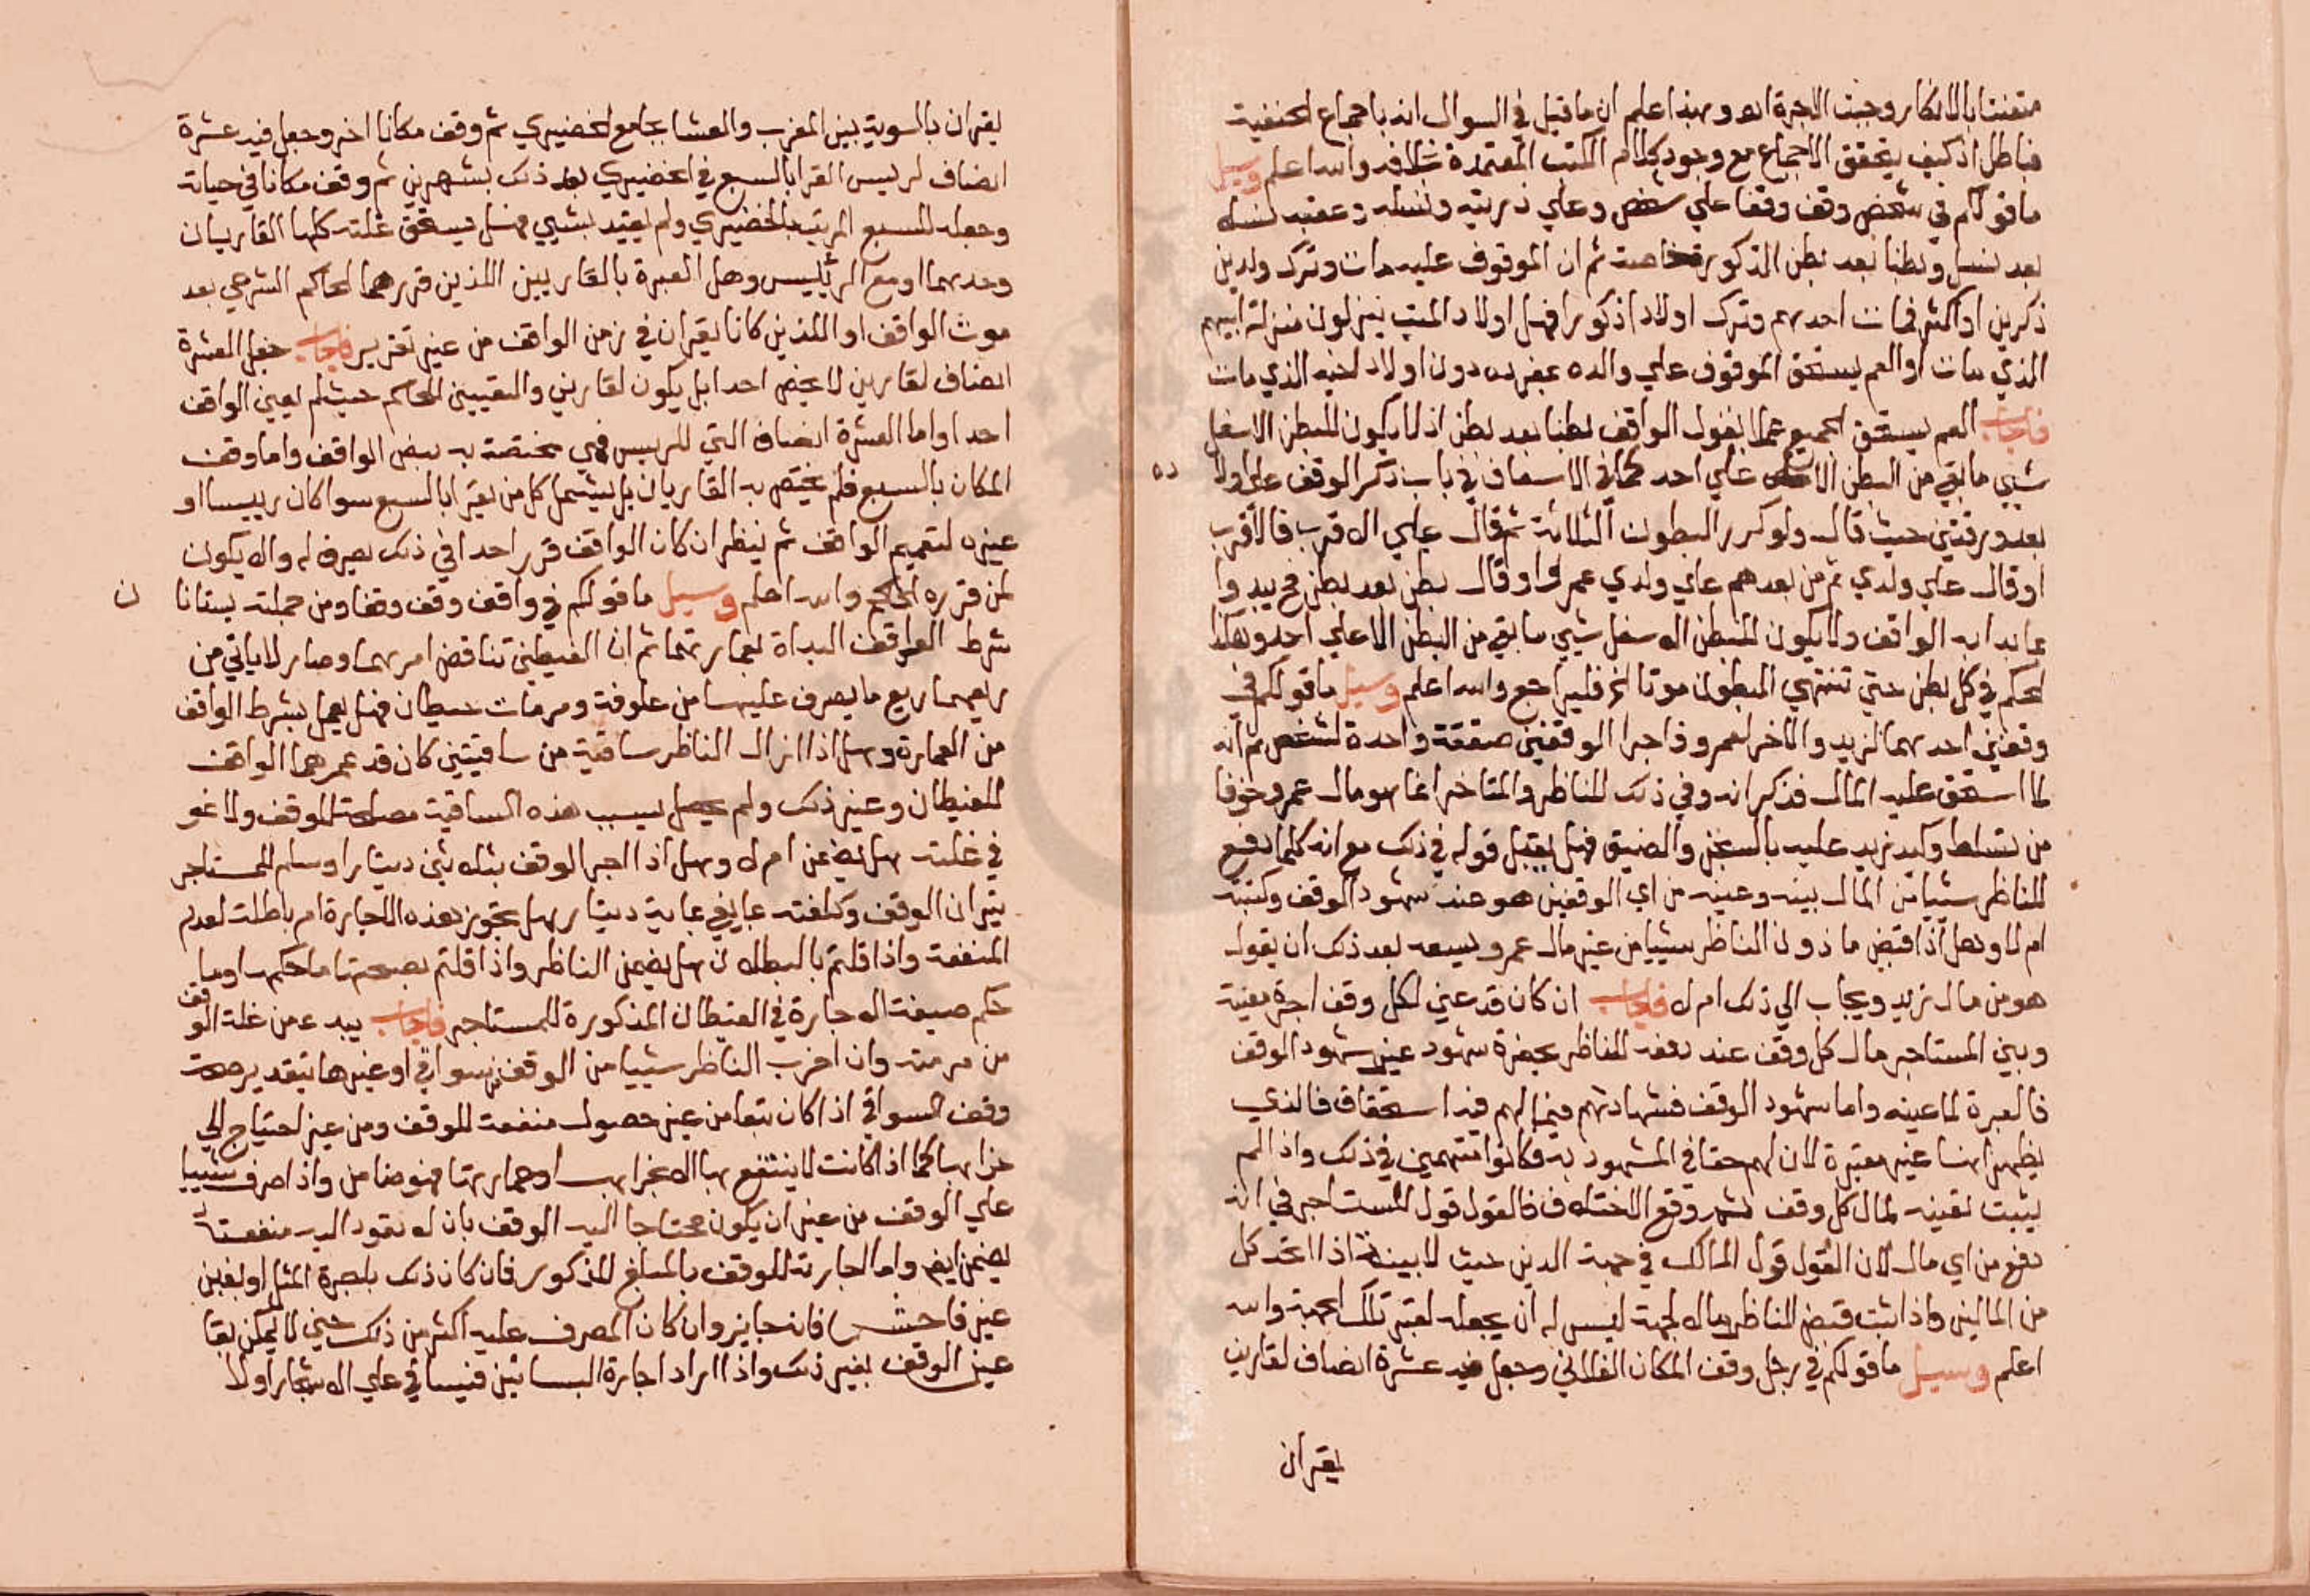 متعنتا بالانكار وجبت الاجرة اه وبهذا علم ان ما قيل في السوال انه باجماع الحنفية
باطل اذ كيف يتحقق الاجماع مع وجود كلام الكتب المعتمدة خلافه والله اعلم وسيل
ما قولكم في شخص وقف وقفا علي شخص وعلي ذريته ونسله وعقبه نسلا
بعد نسل وبطنا بعد بطن الذكور خاصة ثم ان الموقوف عليه مات وترك ولدين
ذكرين او اكثر فمات احدهم وترك اولادا ذكورا فهل اولاد الميت ينزلون منزلة ابيهم
الذي مات او العم يستحق الموقوف علي والده بمفرده دون اولاد اخيه الذي مات
فاجاب العم يستحق الجميع عملا بقول الواقف بطنا بعد بطن اذ لا يكون للبطن الاسفل
شيي ما بقي من البطن الاعلي احد كما في الاسعاف في باب ذكر الوقف علي اولاده
بعد ورقتين حيث قال ولو كرر البطون الثلاثة ثم قال علي الاقرب فالاقرب
او قال علي ولدي ثم من بعدهم علي ولدي عمرو او قال بطن بعد بطن فحـ يبدوا
بما بدا به الواقف ولا يكون للبطن الاسفل شيي ما بقي من البطن الاعلي احد وهكذا
الحكم في كل بطن حتي تنتهي البطون موتا الخ فليراجع والله اعلم وسيل ما قولكم في
وقفين احدهما لزيد والاخر لعمرو فاجرا الوقفين صفقة واحدة لشخص ثم انه
لما استحق عليه المال فذكر انه وفي ذلك للناظر والمتاخر انما هو مال عمرو خوفا
من تسلط وكيد زيد عليه بالسجن والضيق فهل يقبل قوله في ذلك مع انه كلما دفع
للناظر شييا من المال بينه وعينه من اي الوقفين هو عند شهود الوقف وكتبته
ام لا وهل اذا قبض ماذون الناظر شييا من عين مال عمرو يسعه بعد ذلك ان يقول
هو من مال زيد ويجاب الي ذلك ام لا فاجاب ان كان قد عين لكل وقف اجرة معينة
وبين المستاجر مال كل وقف عند دفعه للناظر بحضرة شهود غير شهود الوقف
فالعبرة لما عينه واما شهود الوقف فشهادتهم فيما لهم فيه استحقاق فالذي
يظهر انها غير معتبرة لان لهم حقا في المشهود به فكانوا متهمين في ذلك واذا لم
يثبت تعينه لمال كل وقف ثم وقع الاختلاف فالقول قول المستاجر في انه
دفع من اي مال لان القول قول المالك في جهة الدين حيث لا بينة اذا اتحد كل
من المالين واذا ثبت قبض الناظر مالا لجهة ليس له ان يجعله لغير تلك الجهة والله
اعلم وسيل ما قولكم في رجل وقف المكان الفلاني وجعل فيه عشرة انصاف لقاريين
يقران
يقران بالسوية بين المغرب والعشا بجامع الخضيري ثم وقف مكانا اخر وجعل فيه عشرة
انصاف لرييس القرا بالسبع في الخضيري بعد ذلك بشهرين ثم وقف مكانا في حياته
وجعله للسبع المرتب بالخضيري ولم يقيد بشيي فهل يستحق غلته كلها القاريان
وحدهما او مع الرييس وهل العبرة بالقاريين اللذين قررهما الحاكم الشرعي بعد
موت الواقف او اللذين كانا يقران في زمن الواقف من غير تقرير فاجاب جعل العشرة
انصاف لقاريين لا يخص احدا بل يكون لقاريين والتعيين للحاكم حيث لم يعين الواقف
احدا واما العشرة انصاف التي للرييس فهي مختصة به بنص الواقف واما وقف
المكان بالسبع فلم يختص به القاريان بل يشمل كل من يقرا بالسبع سوا كان رييسا او
غيره لتعميم الواقف ثم ينظر ان كان الواقف قرر احدا في ذلك يصرف له والا يكون
لمن قرره الحاكم والله اعلم وسيل ما قولكم في واقف وقف وقفا ومن جملته بستانا ن
شرط الواقف البداة بعمارتهما ثم ان الغيطين تناقض امرهما وصار لا ياتي من
ريعهما ربع ما يصرف عليهما من علوفة ومرمات حيطان فهل يعمل بشرط الواقف
من العمارة وهل اذا ازال الناظر ساقية من ساقيتين كان قد عمرهما الواقف
للغيطان وغير ذلك ولم يحصل بسبب هذه الساقية مصلحة للوقف ولا نمو
في غلته هل يضمن ام لا وهل اذا اجر الوقف بثلاثين دينارا وسلم للمستاجر
ثيران الوقف وكلفته بما يفي بماية دينار هل تجوز هذه الاجارة ام باطلة لعدم
المنفعة واذا قلتم بالبطلان هل يضمن الناظر واذا قلتم بصحتها ما حكمها وما
حكم صيغة الاجارة في الغيطان المذكورة للمستاجر فاجاب يبدء من غلة الوقف
من مرمته وان اخرب الناظر شييا من الوقف سواقي او غيرها بتقدير صحة
وقف السواقي اذا كان تبعا من غير حصول منفعة للوقف ومن غير احتياج الي
خرابها كما اذا كانت لا ينتفع بها الا بخرابها وعمارتها فهو ضامن واذا صرف شييا
علي الوقف من غير ان يكون محتاجا اليه الوقف بان لا تعود اليه منفعته
يضمن ايضا واما اجارته للوقف بالمبلغ المذكور فان كان ذلك باجرة المثل او بغبن
غير فاحش فانه جايز وان كان المصرف عليه اكثر من ذلك حتي لا يمكن بقا
عين الوقف بغير ذلك واذا اراد اجارة البساتين فيساقي علي الاشجار اولا